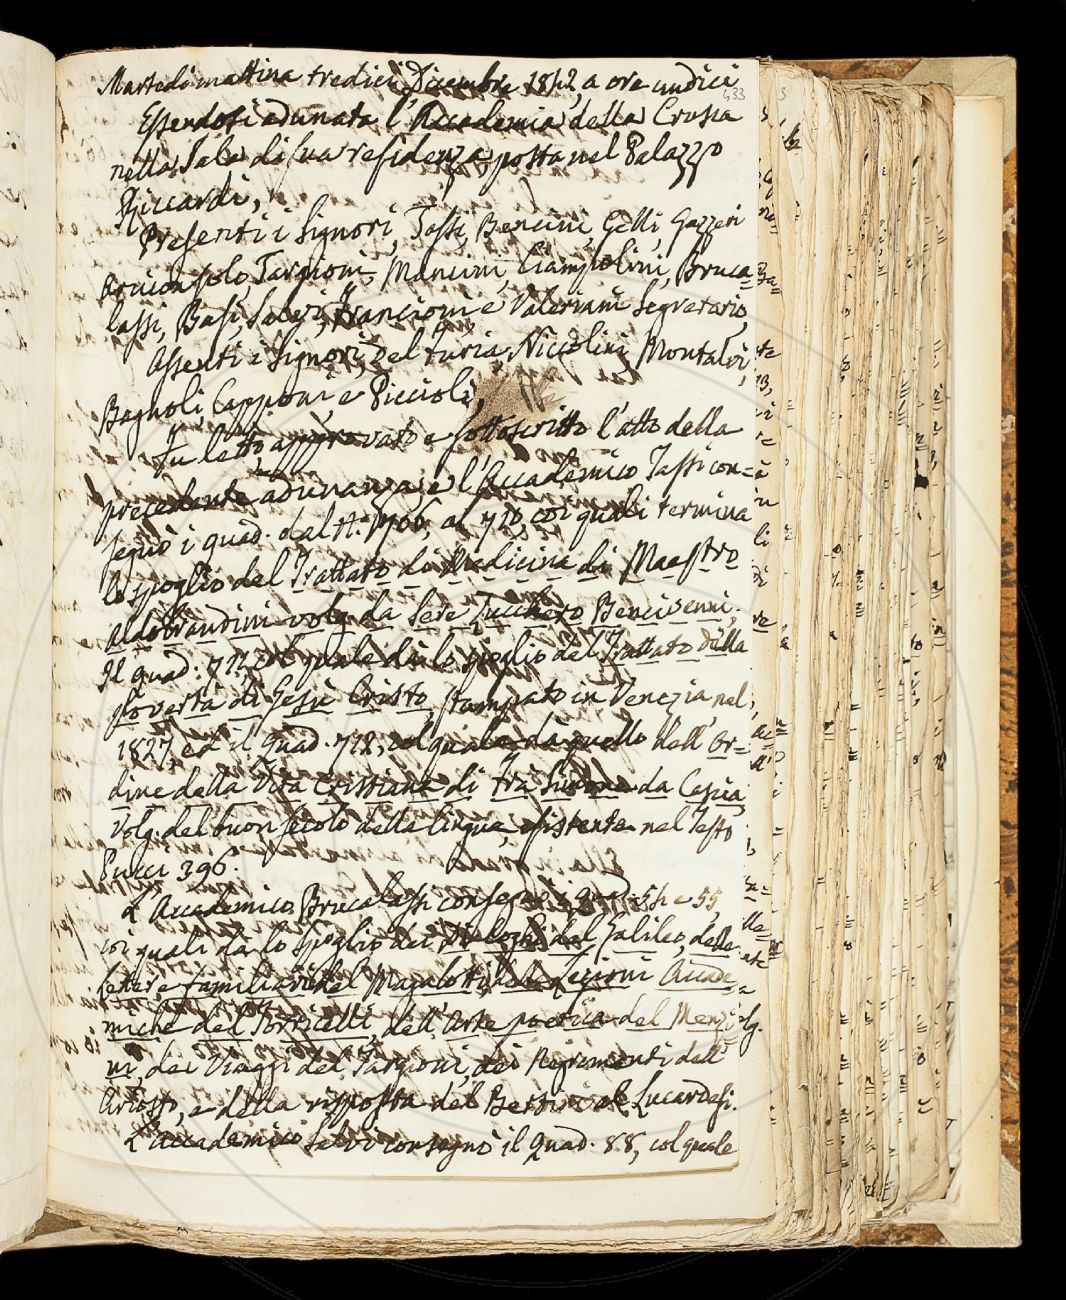 433
Martedì mattina tredici Dicembre 1842, a ore undici
Essendosi adunata l'Accademia della Crusca
nella Sala di sua residenza posta nel Palazzo
Riccardi,
Presenti i Signori, Tassi, Bencini, Gelli, Gazzeri
Targioni, Mancini, Ciampolini, Bruca=
lassi, Basi, Salvi, Francioni e Valeriani Segretario,
Assenti i Signori, Del Furia, Niccolini, Montalvi,
Bagnoli, Capponi, e Piccioli,
Fu letto, approvato e sottoscritto l'atto della
precedente adunanza, e l'Accademico Tassi con=
segnò i quad. dal N. 706, al 710, coi quali termina
lo spoglio del Trattato di Medicina di Maestro
Aldobrandini volg. da Sere Zucchero Bencivenni.
Il quad. 711, col quale dà lo spoglio del Trattato della
Povertà di Gesù Cristo stampato in Venezia nel
1827, ed il quad. 712, col quale dà quello dell'Or=
dine della Vita Cristiana di Frà Simone da Cascia,
Volg. del buon secolo della lingua, esistente nel Testo
Pucci 396.
L'Accademico Brucalassi consegnò i quad. 54 e 55,
coi quali dà lo spoglio dei Dialoghi del Galileo, delle
Lettere familiari del Magalotti, delle Lezioni Accade=
miche del Torricelli, dell'Arte poetica del Menzi
ni, dei Viaggi del Targioni, dei dell'
Ariosto, e della risposta del al Lucardesi.
L'accademico Salvi consegnò il Quad. 88, col quale